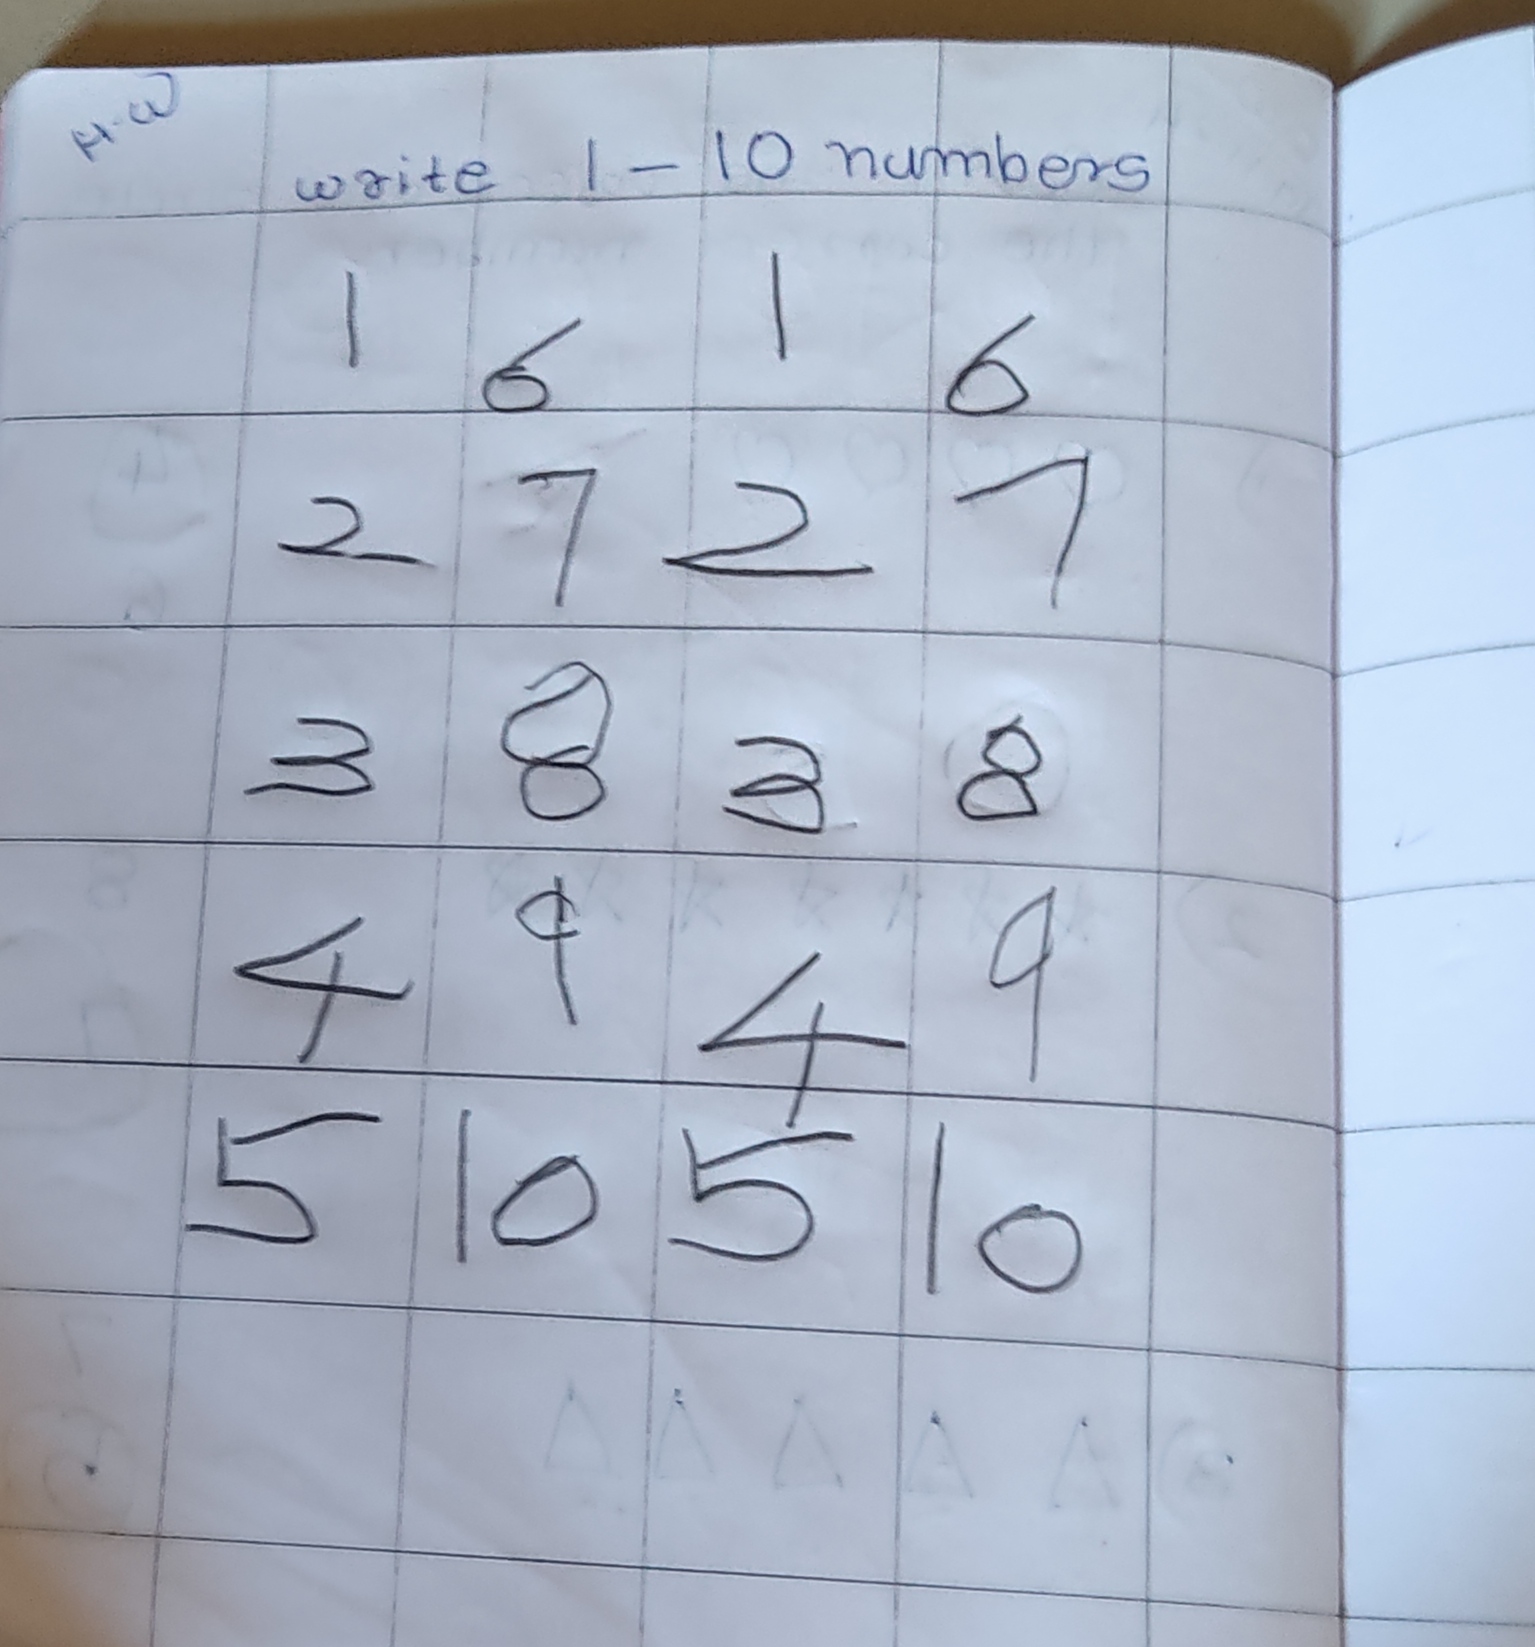 H.W
write 1 - 10 numbers
1 6 1 6
2 7 2 7
3 8 3 8
4 9 4 9
5 10 5 10